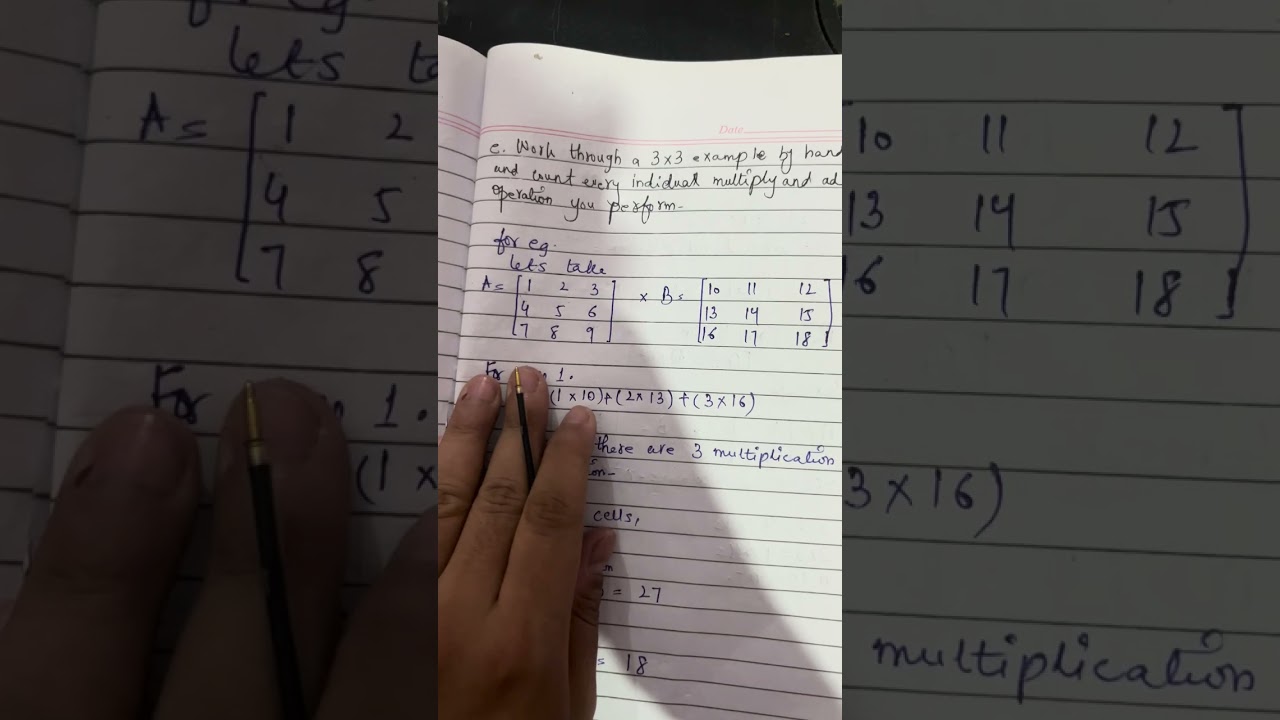 Date
e. Work through a 3x3 example by hand
and count every indidual multiply and ad
operation you perform-
for eg.
lets take
A= [1 2 3 × B= [10 11 12
4 5 6 13 14 15
7 8 9] 16 17 18]
For 1.
(1 × 10) + (2 × 13) + (3 × 16)
there are 3 multiplication
on-
cells,
= 27
= 18